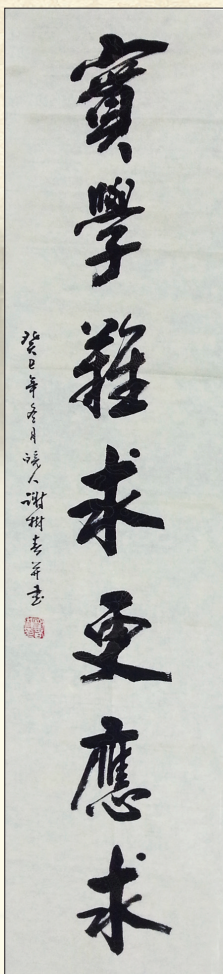 實學難求更應求
癸巳年冬月皖人謝樹春并書